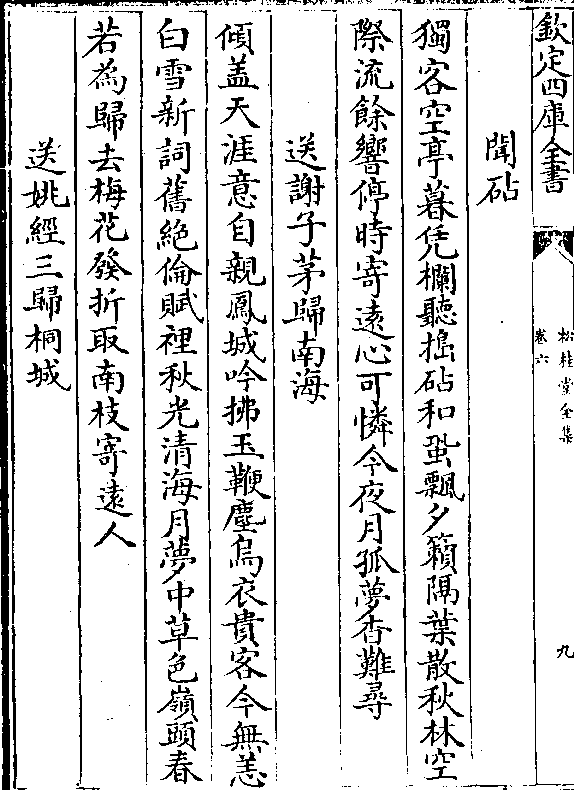 欽定四庫全書
松桂堂全集
卷六
九
聞砧
獨客空亭暮凭欄聽搗砧和蛩飄夕籟隔葉散秋林空
際流餘響停時寄遠心可憐今夜月孤夢杳難尋
送謝子茅歸南海
傾盖天涯意自親鳳城吟拂玉鞭塵烏衣貴客今無恙
白雪新詞舊絶倫賦裡秋光清海月夢中草色嶺頭春
若為歸去梅花發折取南枝寄遠人
送姚經三歸桐城